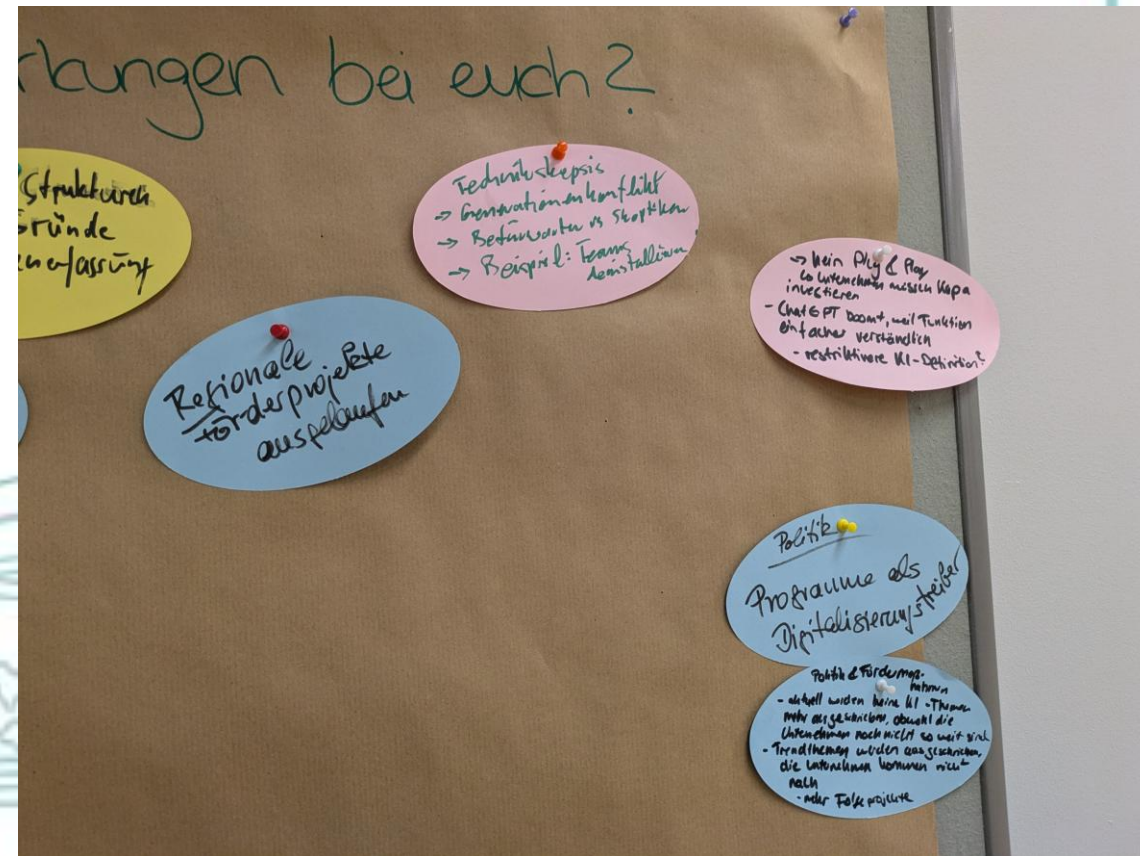 rkungen bei euch?
Strukturen
Gründe
enerfassung
Technikskepsis
→ Generationenkonflikt
→ Befürworter vs Skeptiker
→ Beispiel: Teams
deinstallieren
→ kein Plug & Play
↳ Unternehmen müssen Kapa
investieren
- ChatGPT boomt, weil Funktion
einfacher verständlich
- restriktivere KI-Definition?
Regionale
Förderprojekte
ausgelaufen
Politik
Programme als
Digitalisierungstreiber
Politik & Fördermaß-
nahmen
- aktuell werden keine KI-Themen
mehr ausgeschrieben, obwohl die
Unternehmen noch nicht so weit sind
- Trendthemen werden ausgeschrieben,
die Unternehmen kommen nicht
nach
- mehr Folgeprojekte